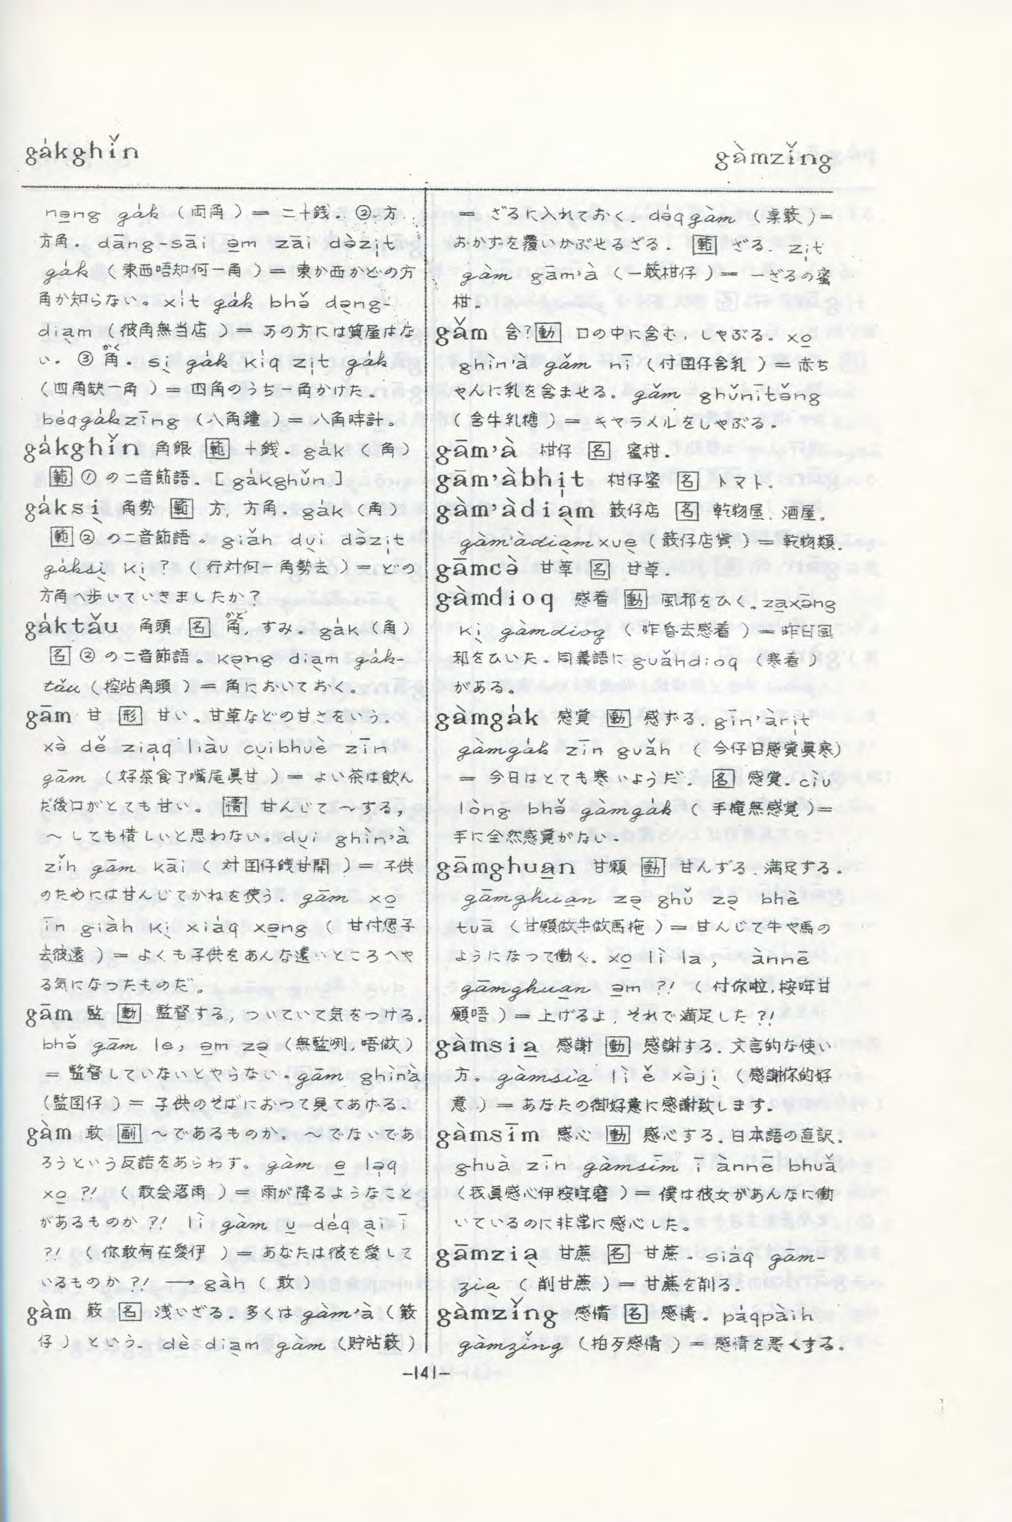 gȧkghǐn
gàmzǐng
nə̱ng gȧk (両角) = 二十銭. ②. 方.
方角. dāng-sāi ə̱m zāi də̀zi̍t
gȧk (東西唔知何一角) = 東か西かどの方
角か知らない。xi̍t gȧk bhə̌ də̱ng-
dia̱m (彼角無当店) = あの方には質屋はな
い. ③ 角(かく). si̱ gȧk kíq zi̍t gȧk
(四角缺一角) = 四角のうち一角かけた.
béqgȧkzīng (八角鐘) = 八角時計。
gȧkghǐn 角銀 [範] 十銭. gȧk (角)
[範] ① の二音節語. [gȧkghǔn]
gȧksi̱ 角勢 [範] 方, 方角. gȧk (角)
[範] ② の二音節語。giȧh du̱i də̀zi̍t
gȧksi̱ ki̱ ? (行対何一角勢去) = どの
方角へ歩いていきましたか?
gȧktǎu 角頭 [名] 角(かど), すみ. gȧk (角)
[名] ② の二音節語。kə̱ng dia̱m gȧk-
tǎu (控坫角頭) = 角においておく.
gām 甘 [形] 甘い. 甘草などの甘さをいう.
xə̀ dě zia̍q liàu cu̱ibhuè zīn
gām (好茶食了嘴尾眞甘) = よい茶は飲ん
だ後口がとても甘い. [情] 甘んじて〜する,
〜しても惜しいと思わない. du̱i ghìn'à
zǐh gām kāi (対囝仔銭甘開) = 子供
のためには甘んじてかねを使う. gām xo̱
īn giàh ki̱ xiáq xə̱ng (甘付𠆧子
去彼遠) = よくも子供をあんな遠いところへや
る気になったものだ。
gām 監 [動] 監督する, ついていて気をつける.
bhə̌ gām le, ə̱m zə̱ (無監咧, 唔做)
= 監督していないとやらない. gām ghìn'à
(監囝仔) = 子供のそばにおって見てあげる.
gàm 敢 [副] 〜であるものか. 〜でないであ
ろうという反詰をあらわす. gàm e̱ lə̍q
xo̱ ?! (敢会落雨) = 雨が降るようなこと
があるものか ?! lì gàm u̱ déq a̱i ī
?! (你敢有在愛伊) = あなたは彼を愛して
いるものか ?! → gàh (敢)
gàm 𥴊 [名] 浅いざる. 多くは gàm'à (𥴊
仔) という. dè dia̱m gàm (貯坫𥴊)
= ざるに入れておく. də́qgàm (桌𥴊) =
おかずを覆いかぶせるざる. [範] ざる. zi̍t
gàm gām'à (一𥴊柑仔) = 一ざるの蜜
柑.
gǎm 含? [動] 口の中に含む, しゃぶる. xo̱
ghìn'à gǎm nī (付囝仔含乳) = 赤ち
ゃんに乳を含ませる. gǎm ghǔnītə̌ng
(含牛乳糖) = キャラメルをしゃぶる.
gām'à 柑仔 [名] 蜜柑.
gām'àbhi̍t 柑仔蜜 [名] トマト.
gàm'àdia̱m 𥴊仔店 [名] 乾物屋. 酒屋。
gàm'àdia̱mxue̱ (𥴊仔店貨) = 乾物類.
gāmcà 甘草 [名] 甘草.
gàmdioq 感着 [動] 風邪をひく. za̱xə̄ng
ki̱ gàmdioq (昨昏去感着) = 昨日風
邪をひいた. 同義語に guǎhdioq (寒着)
がある。
gàmgȧk 感覚 [動] 感ずる. gīn'àri̍t
gàmgȧk zīn guǎh (今仔日感覚眞寒)
= 今日はとても寒いようだ. [名] 感覚. cìu
lòng bhə̌ gàmgȧk (手攏無感覚) =
手に全然感覚がない.
gāmghua̱n 甘願 [動] 甘んずる. 満足する.
gāmghua̱n zə̱ ghǔ zə̱ bhè
tuā (甘願做牛做馬拖) = 甘んじて牛や馬の
ようになって働く. xo̱ lì la, ànnē
gāmghua̱n ə̱m ?! (付你啦, 按哖甘
願唔) = 上げるよ, それで満足した ?!
gàmsia̱ 感謝 [動] 感謝する. 文言的な使い
方。gàmsia̱ lì ě xə̀ji̱ (感謝你的好
意) = あなたの御好意に感謝致します.
gàmsīm 感心 [動] 感心する. 日本語の直訳.
ghuà zīn gàmsīm ī ànnē bhuǎ
(我眞感心伊按哖磨) = 僕は彼女があんなに働
いているのに非常に感心した。
gāmzia̱ 甘蔗 [名] 甘蔗. siáq gām-
zia̱ (削甘蔗) = 甘蔗を削る.
gàmzǐng 感情 [名] 感情. páqpàih
gàmzǐng (拍歹感情) = 感情を悪くする.
-141-